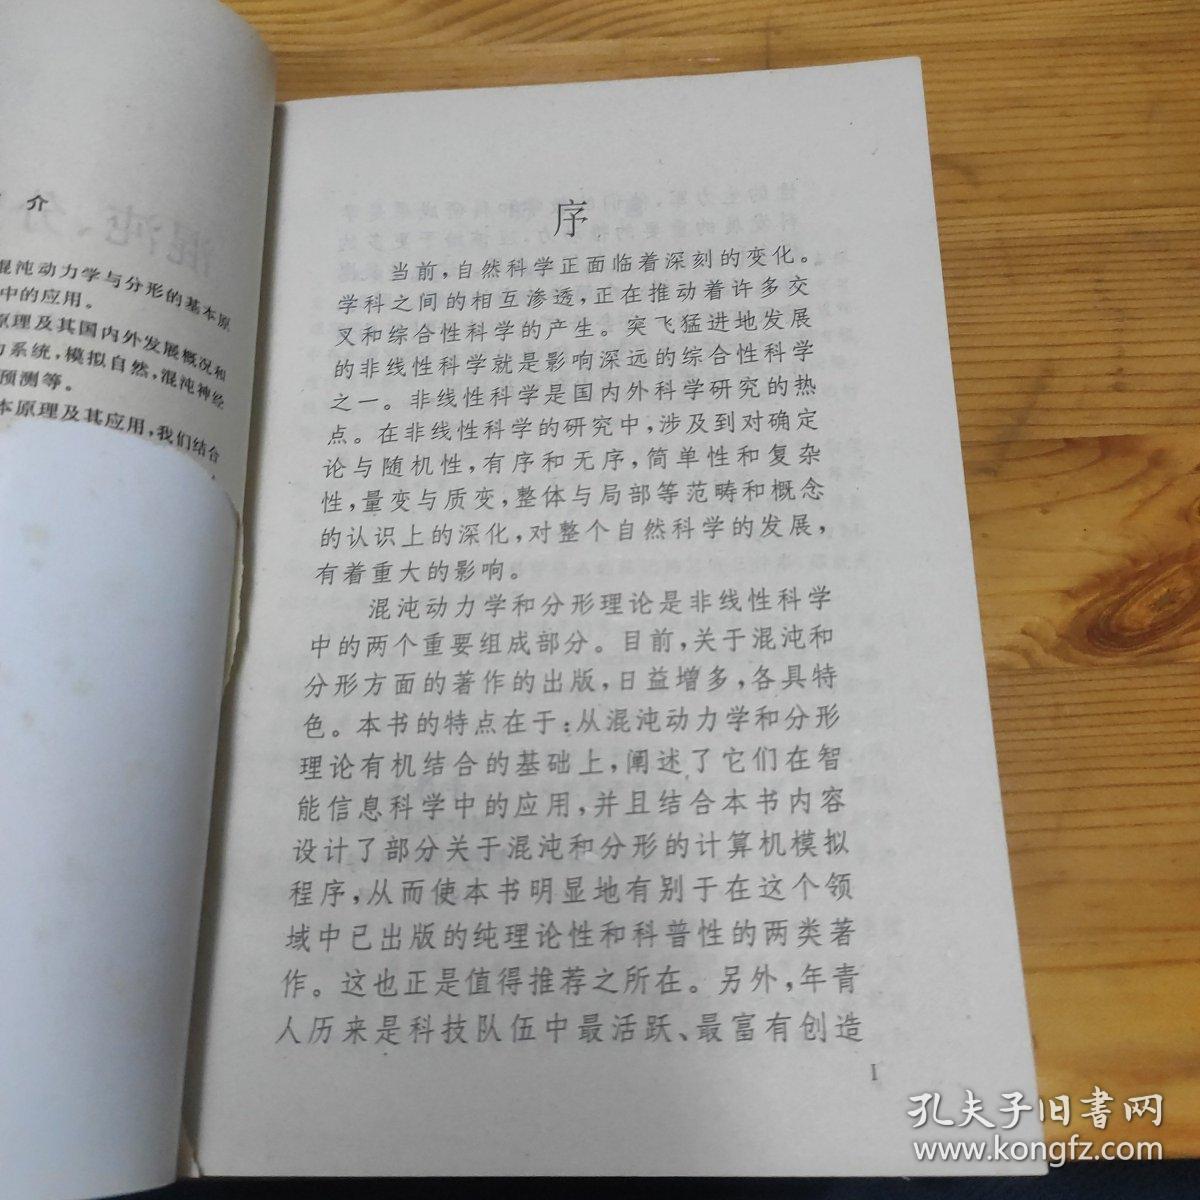 介
混沌动力学与分形的基本原
中的应用。
原理及其国内外发展概况和
力系统，模拟自然，混沌神经
预测等。
本原理及其应用，我们结合
序
当前，自然科学正面临着深刻的变化。
学科之间的相互渗透，正在推动着许多交
叉和综合性科学的产生。突飞猛进地发展
的非线性科学就是影响深远的综合性科学
之一。非线性科学是国内外科学研究的热
点。在非线性科学的研究中，涉及到对确定
论与随机性，有序和无序，简单性和复杂
性，量变与质变，整体与局部等范畴和概念
的认识上的深化，对整个自然科学的发展，
有着重大的影响。
混沌动力学和分形理论是非线性科学
中的两个重要组成部分。目前，关于混沌和
分形方面的著作的出版，日益增多，各具特
色。本书的特点在于：从混沌动力学和分形
理论有机结合的基础上，阐述了它们在智
能信息科学中的应用，并且结合本书内容
设计了部分关于混沌和分形的计算机模拟
程序，从而使本书明显地有别于在这个领
域中已出版的纯理论性和科普性的两类著
作。这也正是值得推荐之所在。另外，年青
人历来是科技队伍中最活跃、最富有创造
I
孔夫子旧书网
www.kongfz.com